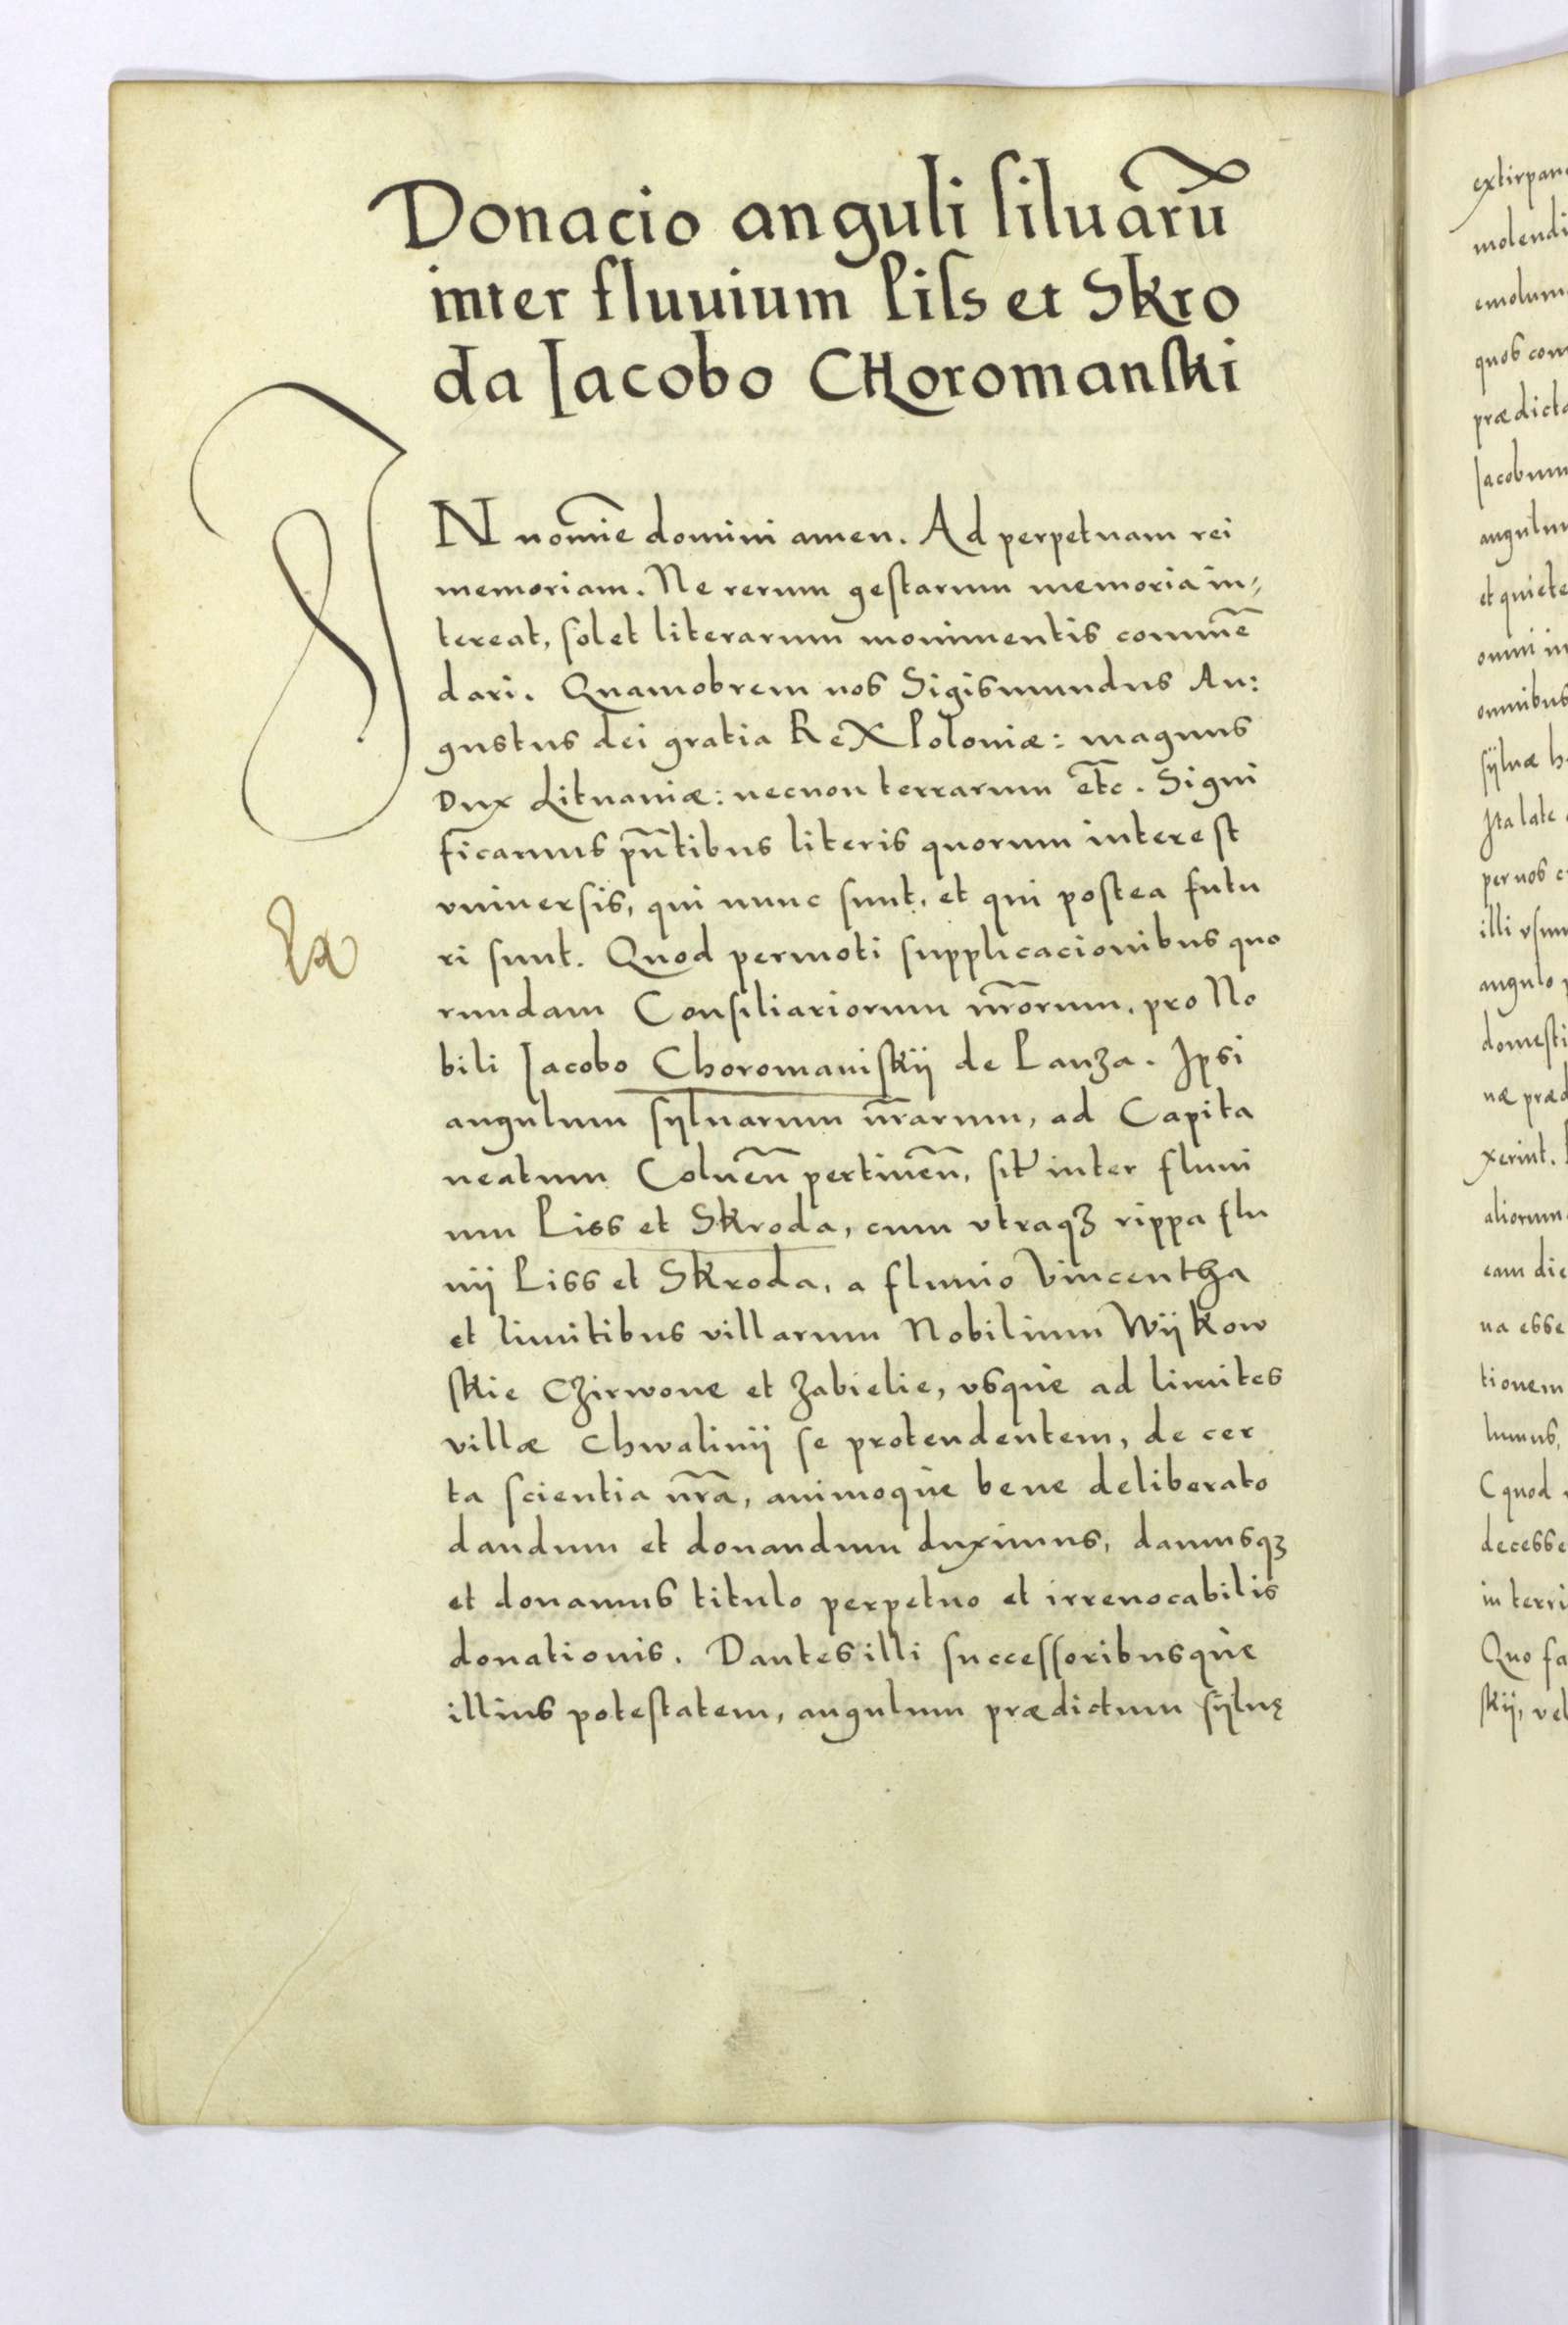 Donacio anguli siluarū
inter fluuium Piss et Skro
da Jacobo CHoromanski
IN nomīe domini amen. Ad perpetuam rei
memoriam. Ne rerum gestarum memoria in,
tereat, solet literarum monimentis commē
dari. Quamobrem nos Sigismundus Au:
gustus dei gratia ReX Poloniæ: magnus
Dux Lituaniæ: necnon terrarum etc̄. Signi
ficamus pn̄tibus literis quorum interest
vniuersis, qui nunc sunt, et qui postea futu
ri sunt. Quod permoti supplicacionibus quo
rundam Consiliariorum nr̄orum, pro No
bili Jacobo Choromaniskij de Panza. Ipsi
angulum syluarum nr̄arum, ad Capita
neatum Coluen̄ pertinen̄, sit inter fluui
um Piss et Skroda, cum vtraqꝫ rippa flu
uij Piss et Skroda, a fluuio Vincentha
et limitibus villarum Nobilium Wijkow
skie Czirwone et Zabielie, vsque ad limites
villæ Chwalinij se protendentem, de cer
ta scientia nr̄a, animoque bene deliberato
dandum et donandum duximus, damusqꝫ
et donamus titulo perpetuo et irreuocabilis
donationis. Dantes illi successoribusque
illius potestatem, angulum prædictum sÿluę
extirpan
molendi
emolum
quos con
prædict
Jacobum
angulu
et quiete
omni in
omnibus
sÿluæ h
Ita late
per nos c
illi vsum
angulo
domesti
næ præd
xerint.
aliorum
eam die
na esse
tionem
lumus,
C quod
decesse
in terri
Quo fa
skij, vel